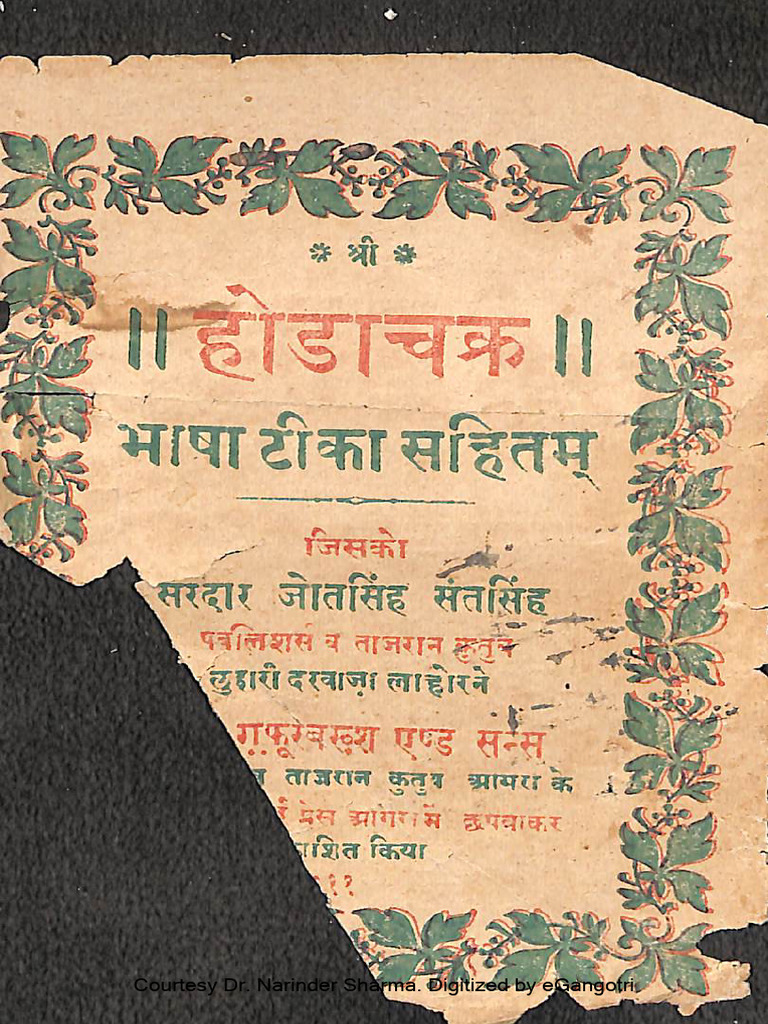 ❋ श्री ❋
॥ होडाचक्र ॥
भाषा टीका सहितम्
जिसको
सरदार जोतसिंह संतसिंह
पबलिशर्स व ताजरान कुतुब
लुहारी दरवाज़ा लाहोरने
एण्ड सन्स
ताजरान कुतुब आगरा के
प्रेस आगरामें छपवाकर
किया
Courtesy Dr. Narinder Sharma. Digitized by eGangotri